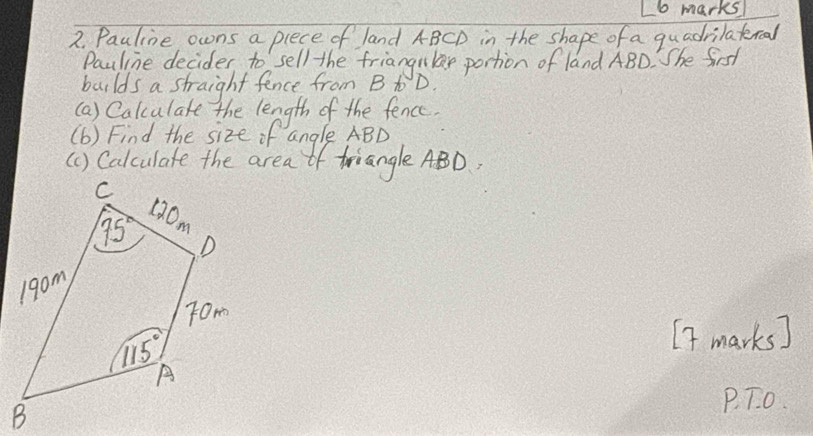 [6 marks]
2. Pauline owns a piece of land ABCD in the shape of a quadrilateral
Pauline decider to sell the triangular portion of land ABD. She first
builds a straight fence from B to D.
(a) Calculate the length of the fence.
(b) Find the size of angle ABD
(c) Calculate the area of triangle ABD.
C
120m
75°
D
190m
70m
[7 marks]
115°
A
P.T.O.
B